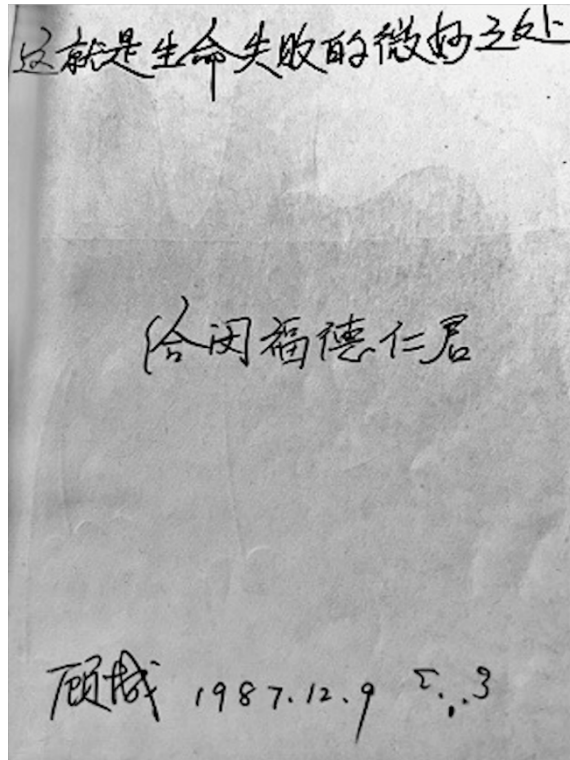 这就是生命失败的微妙之处
给闵福德仁君
顾城 1987.12.9